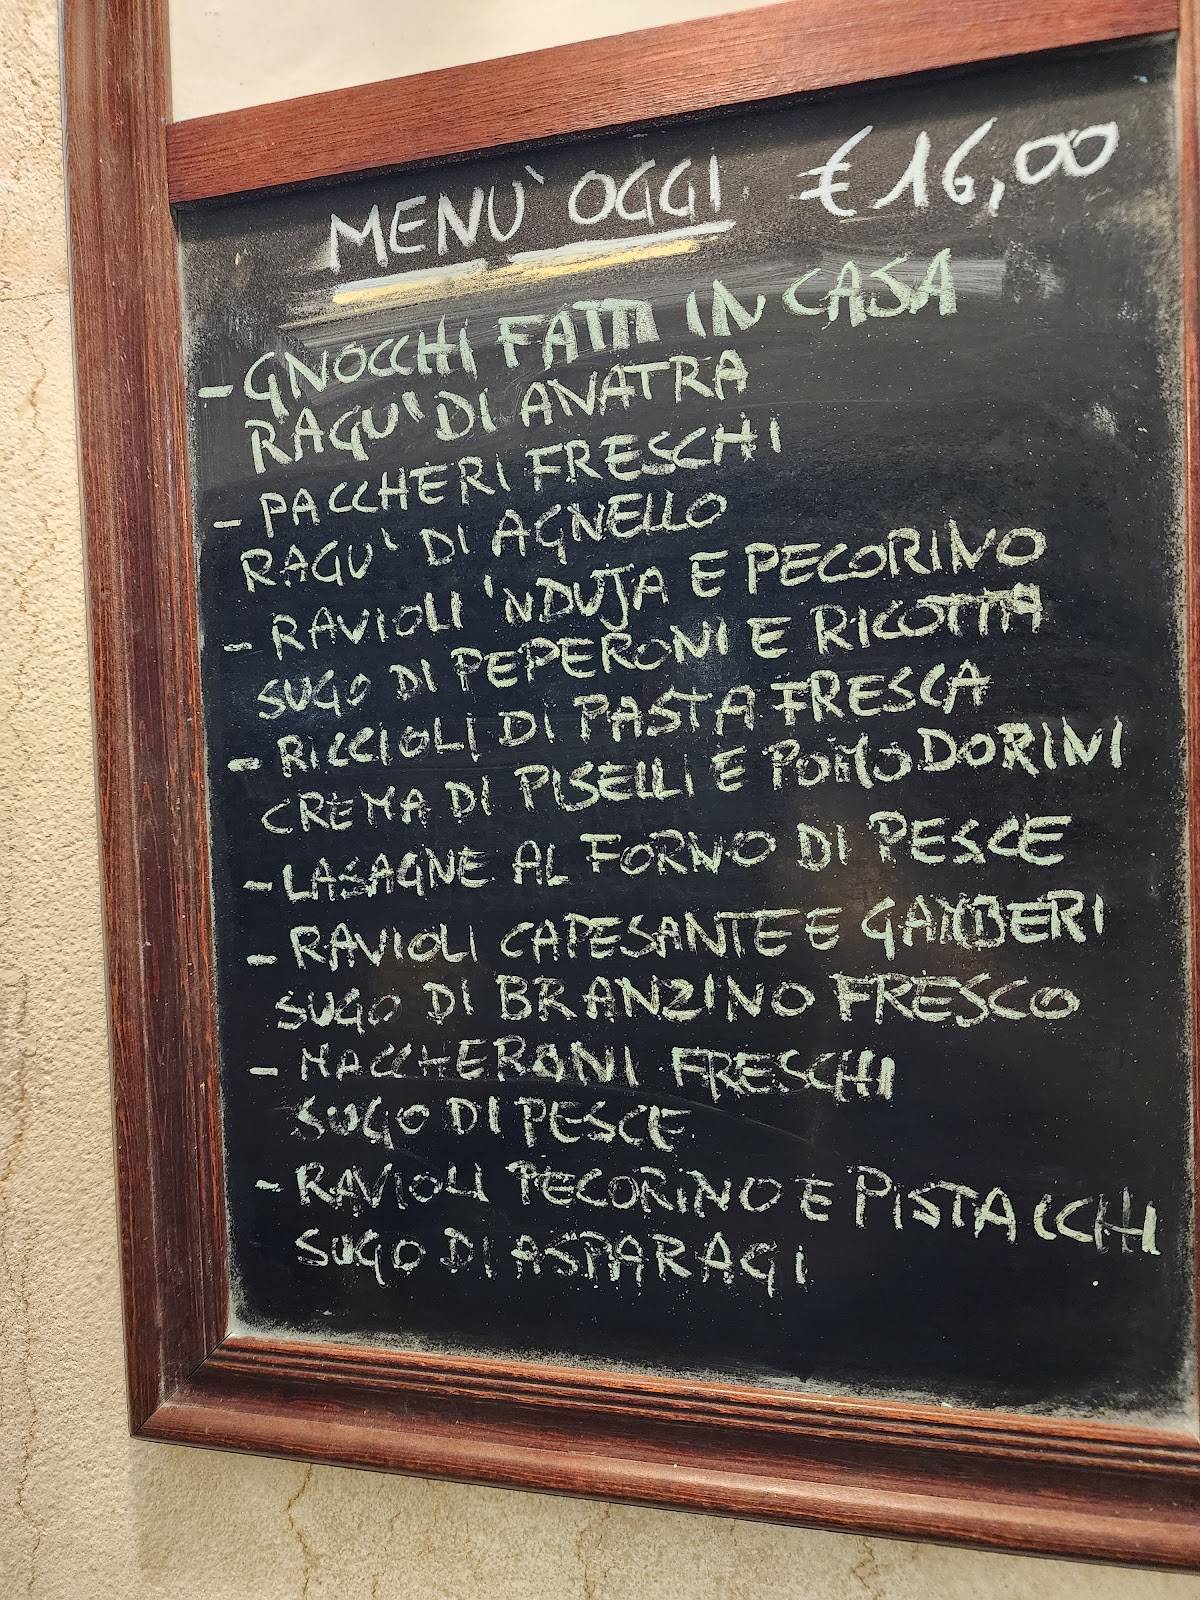 MENÙ OGGI € 16,00
- GNOCCHI FATTI IN CASA
RAGU' DI ANATRA
- PACCHERI FRESCHI
RAGU' DI AGNELLO
- RAVIOLI 'NDUJA E PECORINO
SUGO DI PEPERONI E RICOTTA
- RICCIOLI DI PASTA FRESCA
CREMA DI PISELLI E POMODORINI
- LASAGNE AL FORNO DI PESCE
- RAVIOLI CAPESANTE E GAMBERI
SUGO DI BRANZINO FRESCO
- MACCHERONI FRESCHI
SUGO DI PESCE
- RAVIOLI PECORINO E PISTACCHI
SUGO DI ASPARAGI